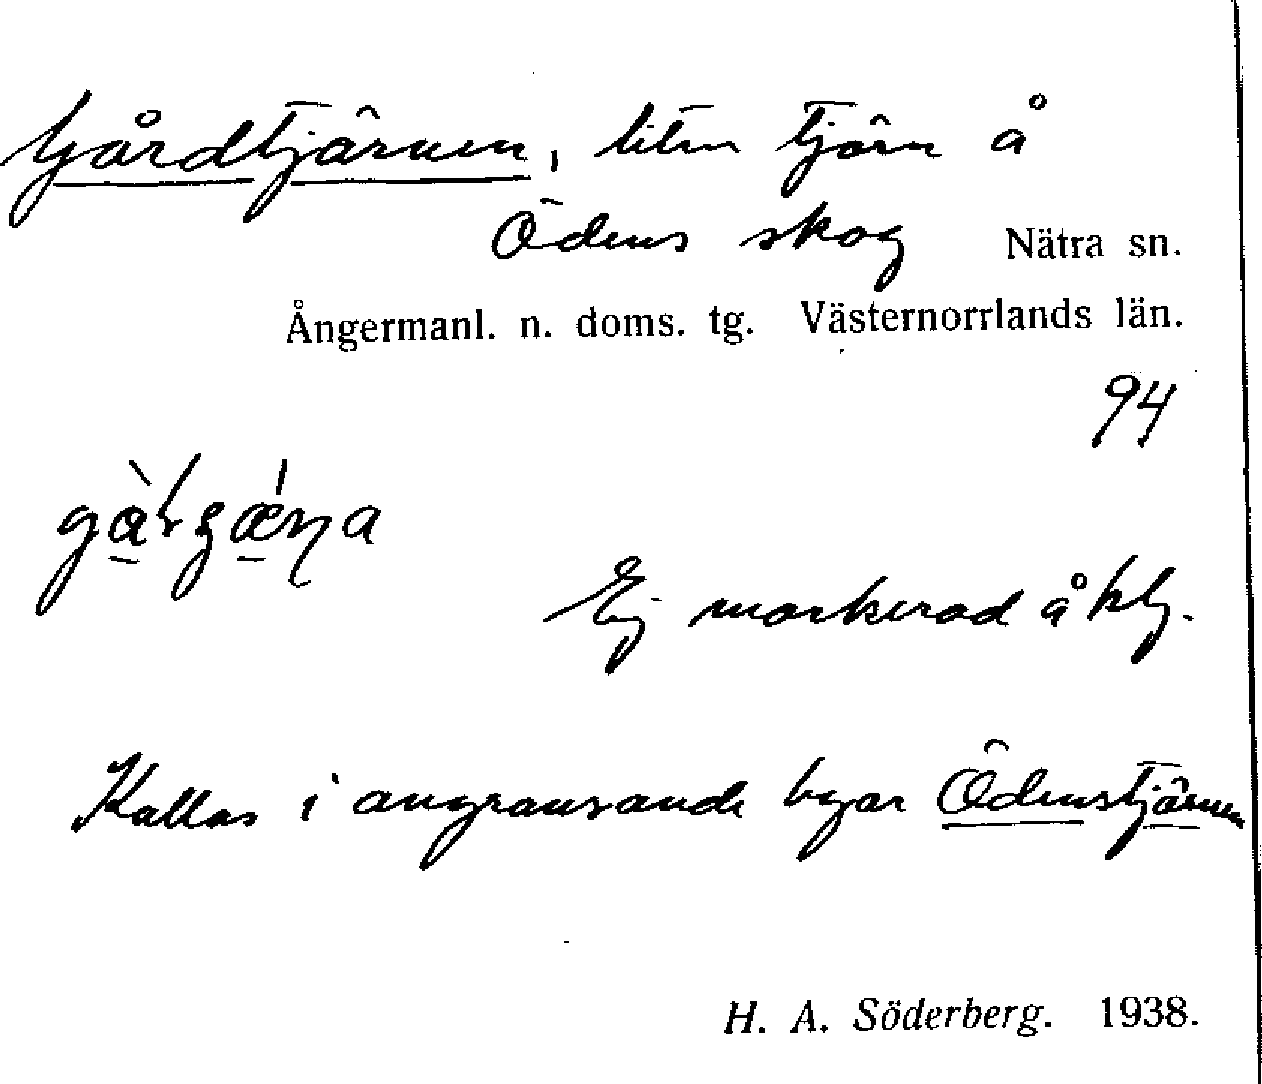 Gårdtjärnen, liten tjärn å
Ödens skog Nätra sn.
Ångermanl. n. doms. tg. Västernorrlands län.
94
Ej markerad å kbl.
Kallas i angränsande byar Ödenstjärnen
H. A. Söderberg. 1938.